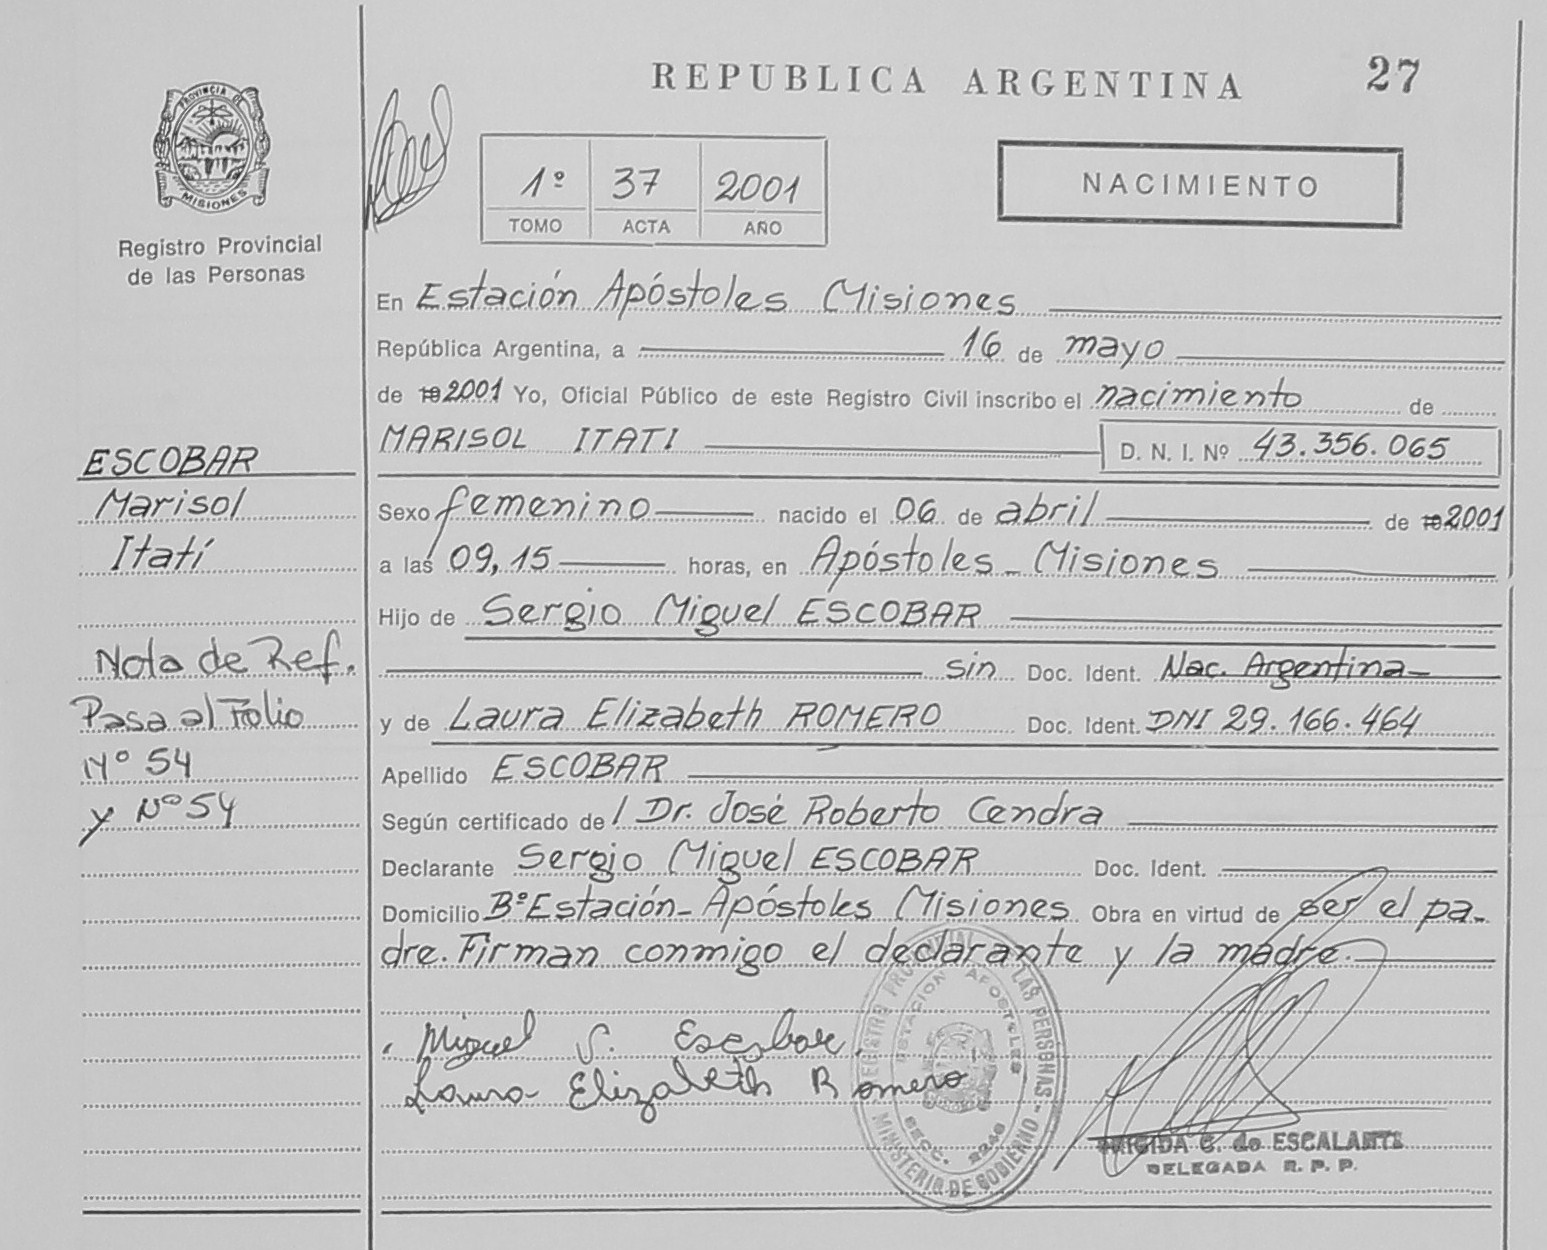 REPUBLICA ARGENTINA
27
PROVINCIA DE
MISIONES
Registro Provincial
de las Personas
1º 37 2001
TOMO ACTA AÑO
NACIMIENTO
En Estación Apóstoles Misiones
República Argentina, a 16 de mayo
de 19 2001 Yo, Oficial Público de este Registro Civil inscribo el nacimiento de
MARISOL ITATI D. N. I. Nº 43.356.065
ESCOBAR
Marisol
Itatí
Sexo femenino nacido el 06 de abril de 19 2001
a las 09,15 horas, en Apóstoles - Misiones
Hijo de Sergio Miguel ESCOBAR
sin Doc. Ident. Nac. Argentina
y de Laura Elizabeth ROMERO Doc. Ident. DNI 29.166.464
Apellido ESCOBAR
Según certificado de / Dr. José Roberto Cendra
Declarante Sergio Miguel ESCOBAR Doc. Ident.
Domicilio Bº Estación - Apóstoles Misiones Obra en virtud de ser el pa-
dre. Firman conmigo el declarante y la madre.
Nota de Ref.
Pasa al Folio
Nº 54
y Nº 54
Miguel S. Escobar
Laura Elizabeth Romero
REGISTRO PROVINCIAL LAS PERSONAS -
MINISTERIO DE GOBIERNO -
ESTACION APOSTOLES
SECC. 2240
BRIGIDA C. de ESCALANTE
DELEGADA R. P. P.